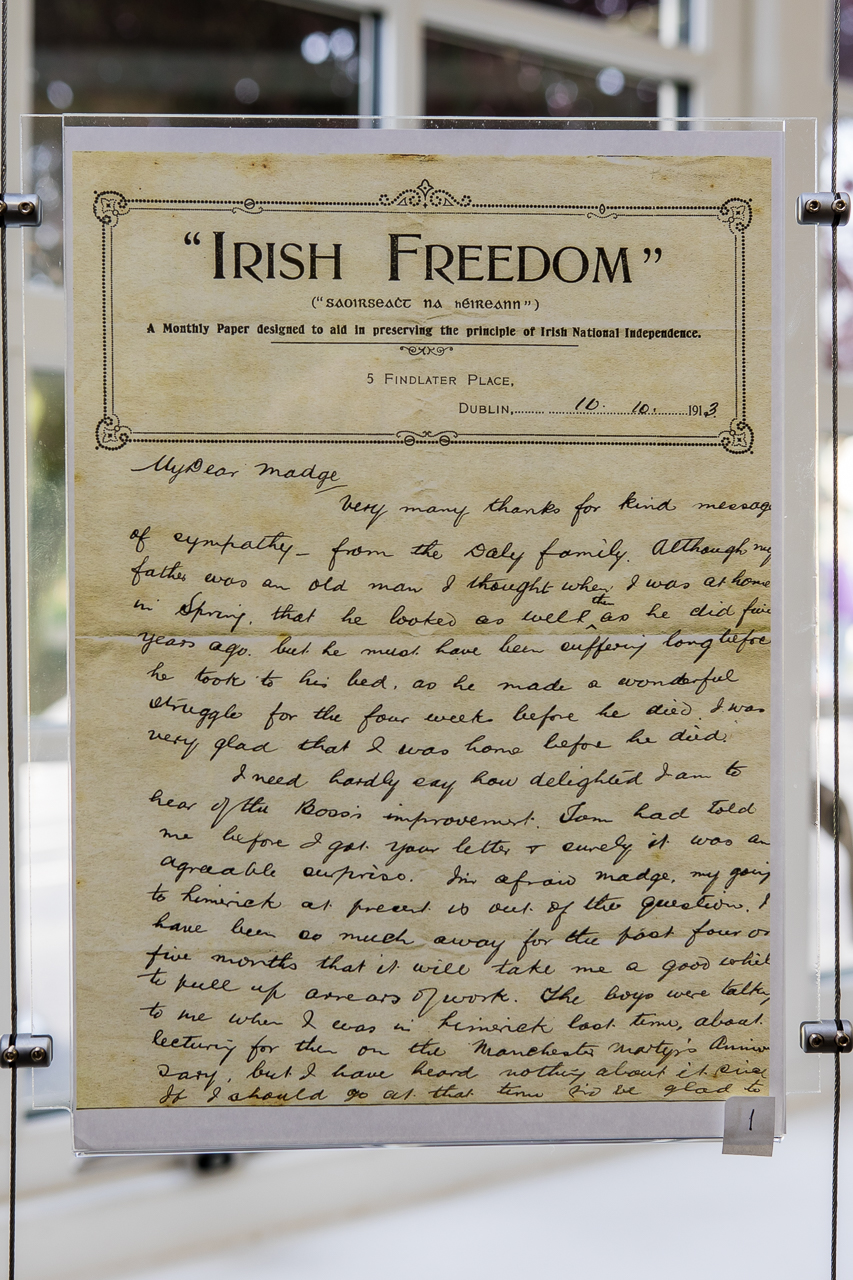 “IRISH FREEDOM”
(“SAOIRSEAĊT NA hÉIREANN”)
A Monthly Paper designed to aid in preserving the principle of Irish National Independence.
5 FINDLATER PLACE,
DUBLIN,........ 10. 10. ........1913
My Dear Madge
Very many thanks for kind message
of sympathy – from the Daly family. Although my
father was an old man I thought when I was at home
in Spring, that he looked as well then as he did five
years ago. but he must have been suffering long before
he took to his bed, as he made a wonderful
struggle for the four weeks before he died. I was
very glad that I was home before he died.
I need hardly say how delighted I am to
hear of the Boss's improvement. Tom had told
me before I got your letter & surely it was an
agreeable surprise. I'm afraid Madge, my going
to Limerick at present is out of the question. I
have been so much away for the past four or
five months that it will take me a good while
to pull up arrears of work. The boys were talking
to me when I was in Limerick last time, about
lecturing for them on the Manchester Martyr's Anniver
sary, but I have heard nothing about it since
If I should go at that time I'd be glad to
1